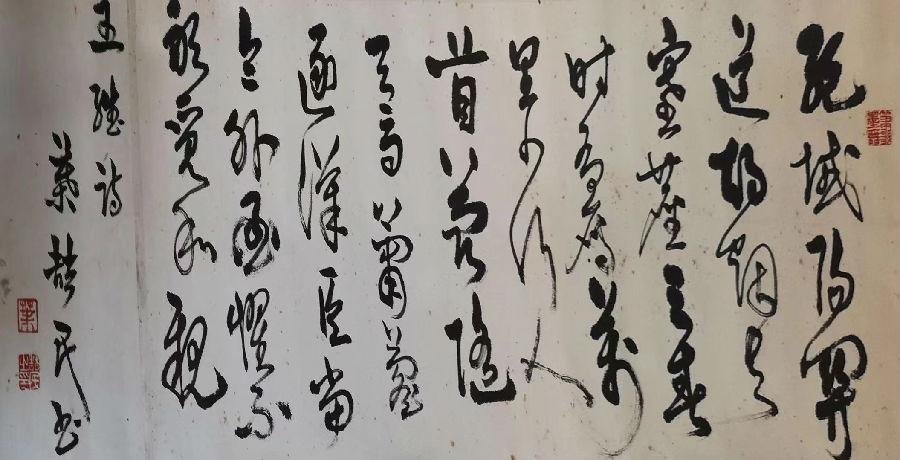 絕域陽關
道胡烟与
塞塵三春
時有雁萬
里少行人
苜蓿隨
天馬葡萄
逐漢臣當
令外國懼不
敢覓和親
王維詩
葉喆民书